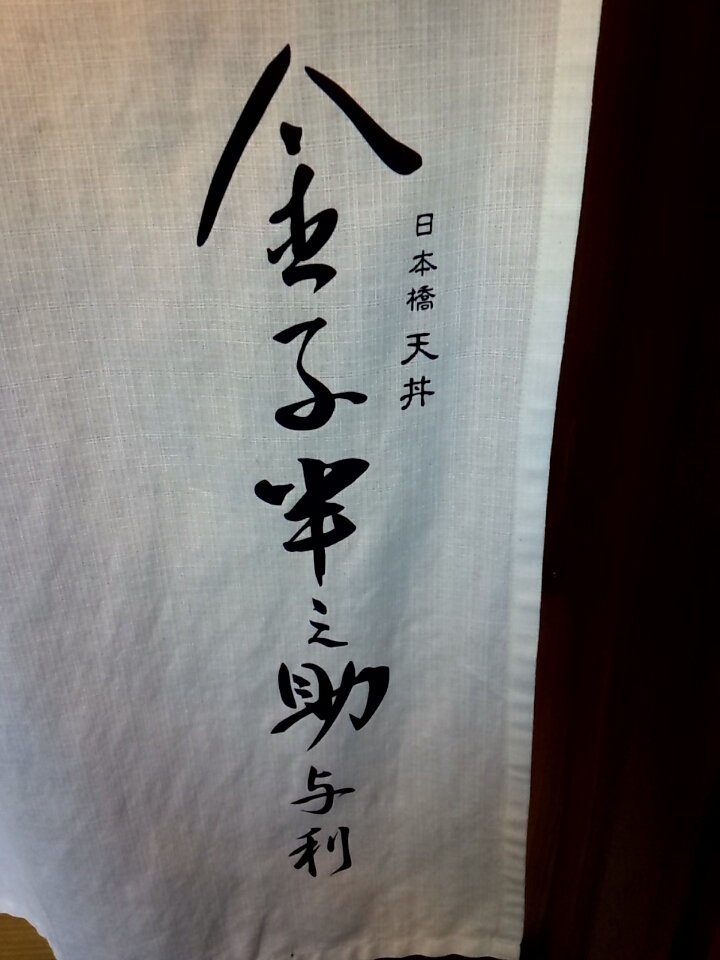 日本橋 天丼
金子半之助与利